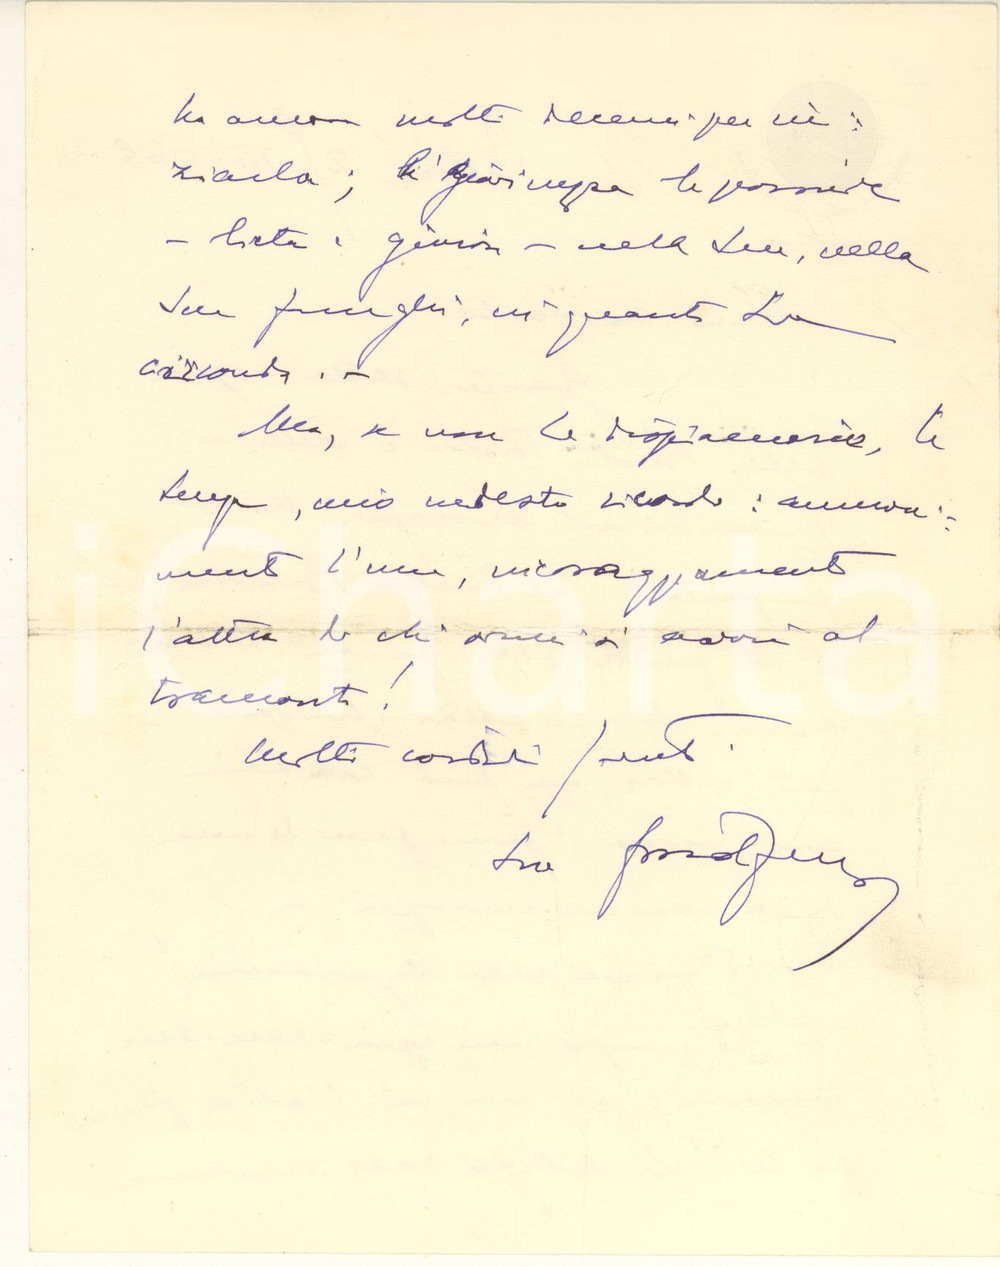 ha ancora molti decenni per ini=
ziarla; la giovinezza la possiede
- lieta e gioiosa - nella Sua, nella
Sua famiglia, in quanto La
circonda. -
Ma, se non Le dispiacerà, La
tenga, mio modesto ricordo: ammoni=
mento l'una, incoraggiamento
l'altra da chi ormai si avvia al
tramonto!
Molti cordiali saluti
Suo
iCharta